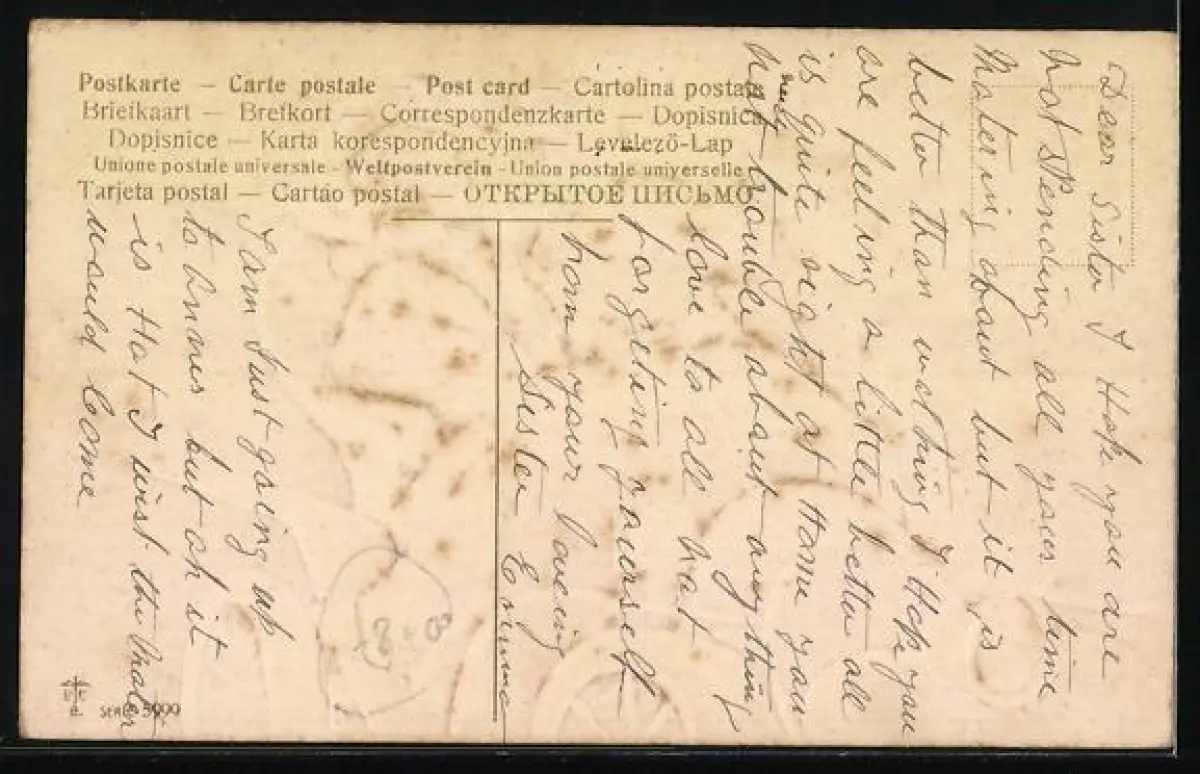 Postkarte — Carte postale — Post card — Cartolina postale
Briefkaart — Brefkort — Correspondenzkarte — Dopisnica
Dopisnice — Karta korespondencyjna — Levelező-Lap
Unione postale universale - Weltpostverein - Union postale universelle
Tarjeta postal — Cartão postal — ОТКРЫТОЕ ПИСЬМО
Dear Sister I Hop you are
not spending all your time
Watering about but it is
better than working I Hope you
are feeling a little better all
is quite right at Home you
need not trouble about anything
love to all not
forgeting yourself
from your loveing
Sister
I am Just going up
to but oh it
is Hot I wish the Water
would Come
SERIE 5999